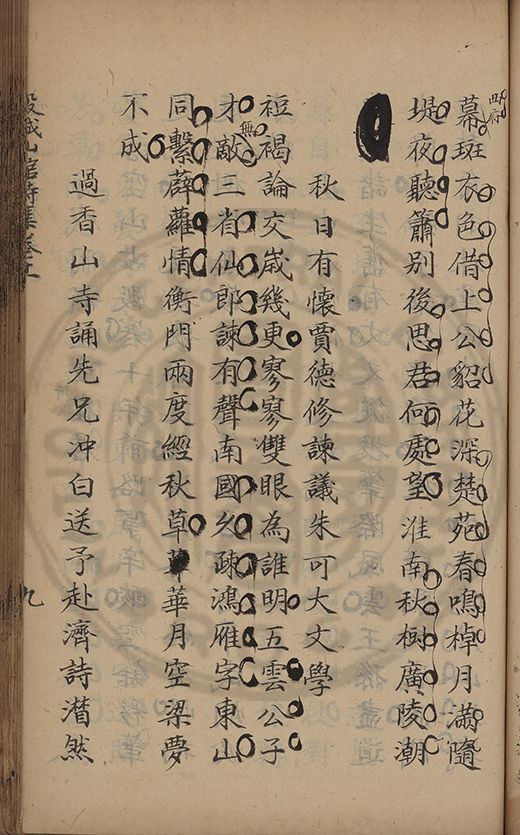 幕斑衣色借上公貂花深楚苑春鳴棹月滿隨
堤夜聽簫別後思君何處望淮南秋樹廣陵潮
秋日有懷賈德修諫議朱可大文學
裋褐論交歲幾更寥寥雙眼為誰明五雲公子
才無敵三省仙郎諫有聲南國久疎鴻雁字東山
同繫薜蘿情衡門兩度經秋草華月空梁夢
不成
過香山寺誦先兄冲白送予赴濟詩潸然
九